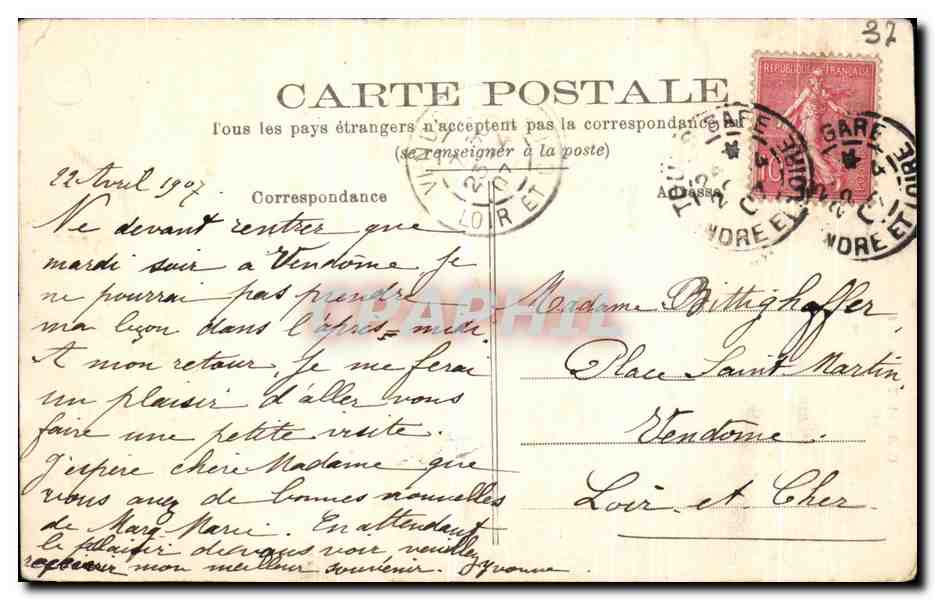 37
REPUBLIQUE FRANÇAISE
10
CARTE POSTALE
Tous les pays étrangers n'acceptent pas la correspondance au
(se renseigner à la poste)
GARE
INDRE ET LOIRE
GARE
INDRE ET LOIRE
LOIR ET
07
22 Avril 1907.
Correspondance
Adresse
Ne devant rentrer que
mardi soir à Vendôme je
ne pourrai pas prendre
ma leçon dans l'après-midi.
A mon retour, je me ferai
un plaisir d'aller vous
faire une petite visite.
J'espère chère Madame que
vous avez de bonnes nouvelles
de Marg. Marie. En attendant
le plaisir de vous voir, veuillez
recevoir mon meilleur souvenir. Yvonne.
Madame Bittighoffer,
Place Saint Martin,
Vendome.
Loir et Cher
CPAPHIL